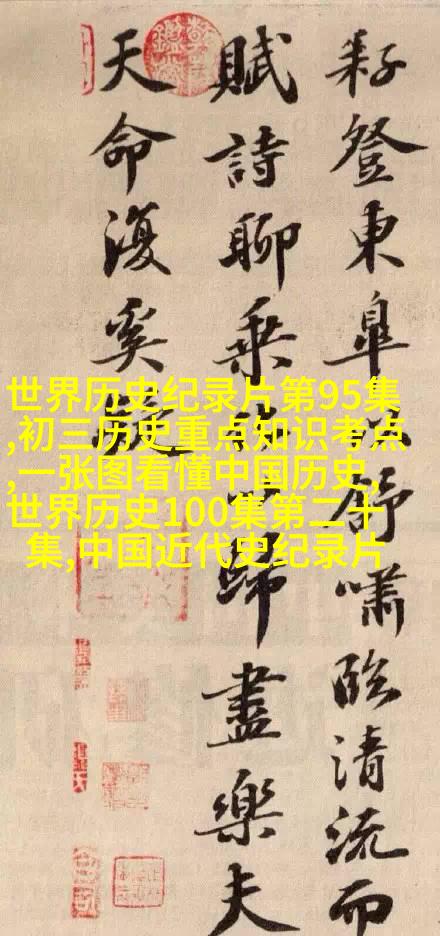 耔登東皋舒嘯臨清流而
賦詩聊乘歸盡樂夫
天命復奚疑
世界历史纪录片第95集
,初三历史重点知识考点
,一张图看懂中国历史,
世界历史100集第二十
集,中国近代史纪录片